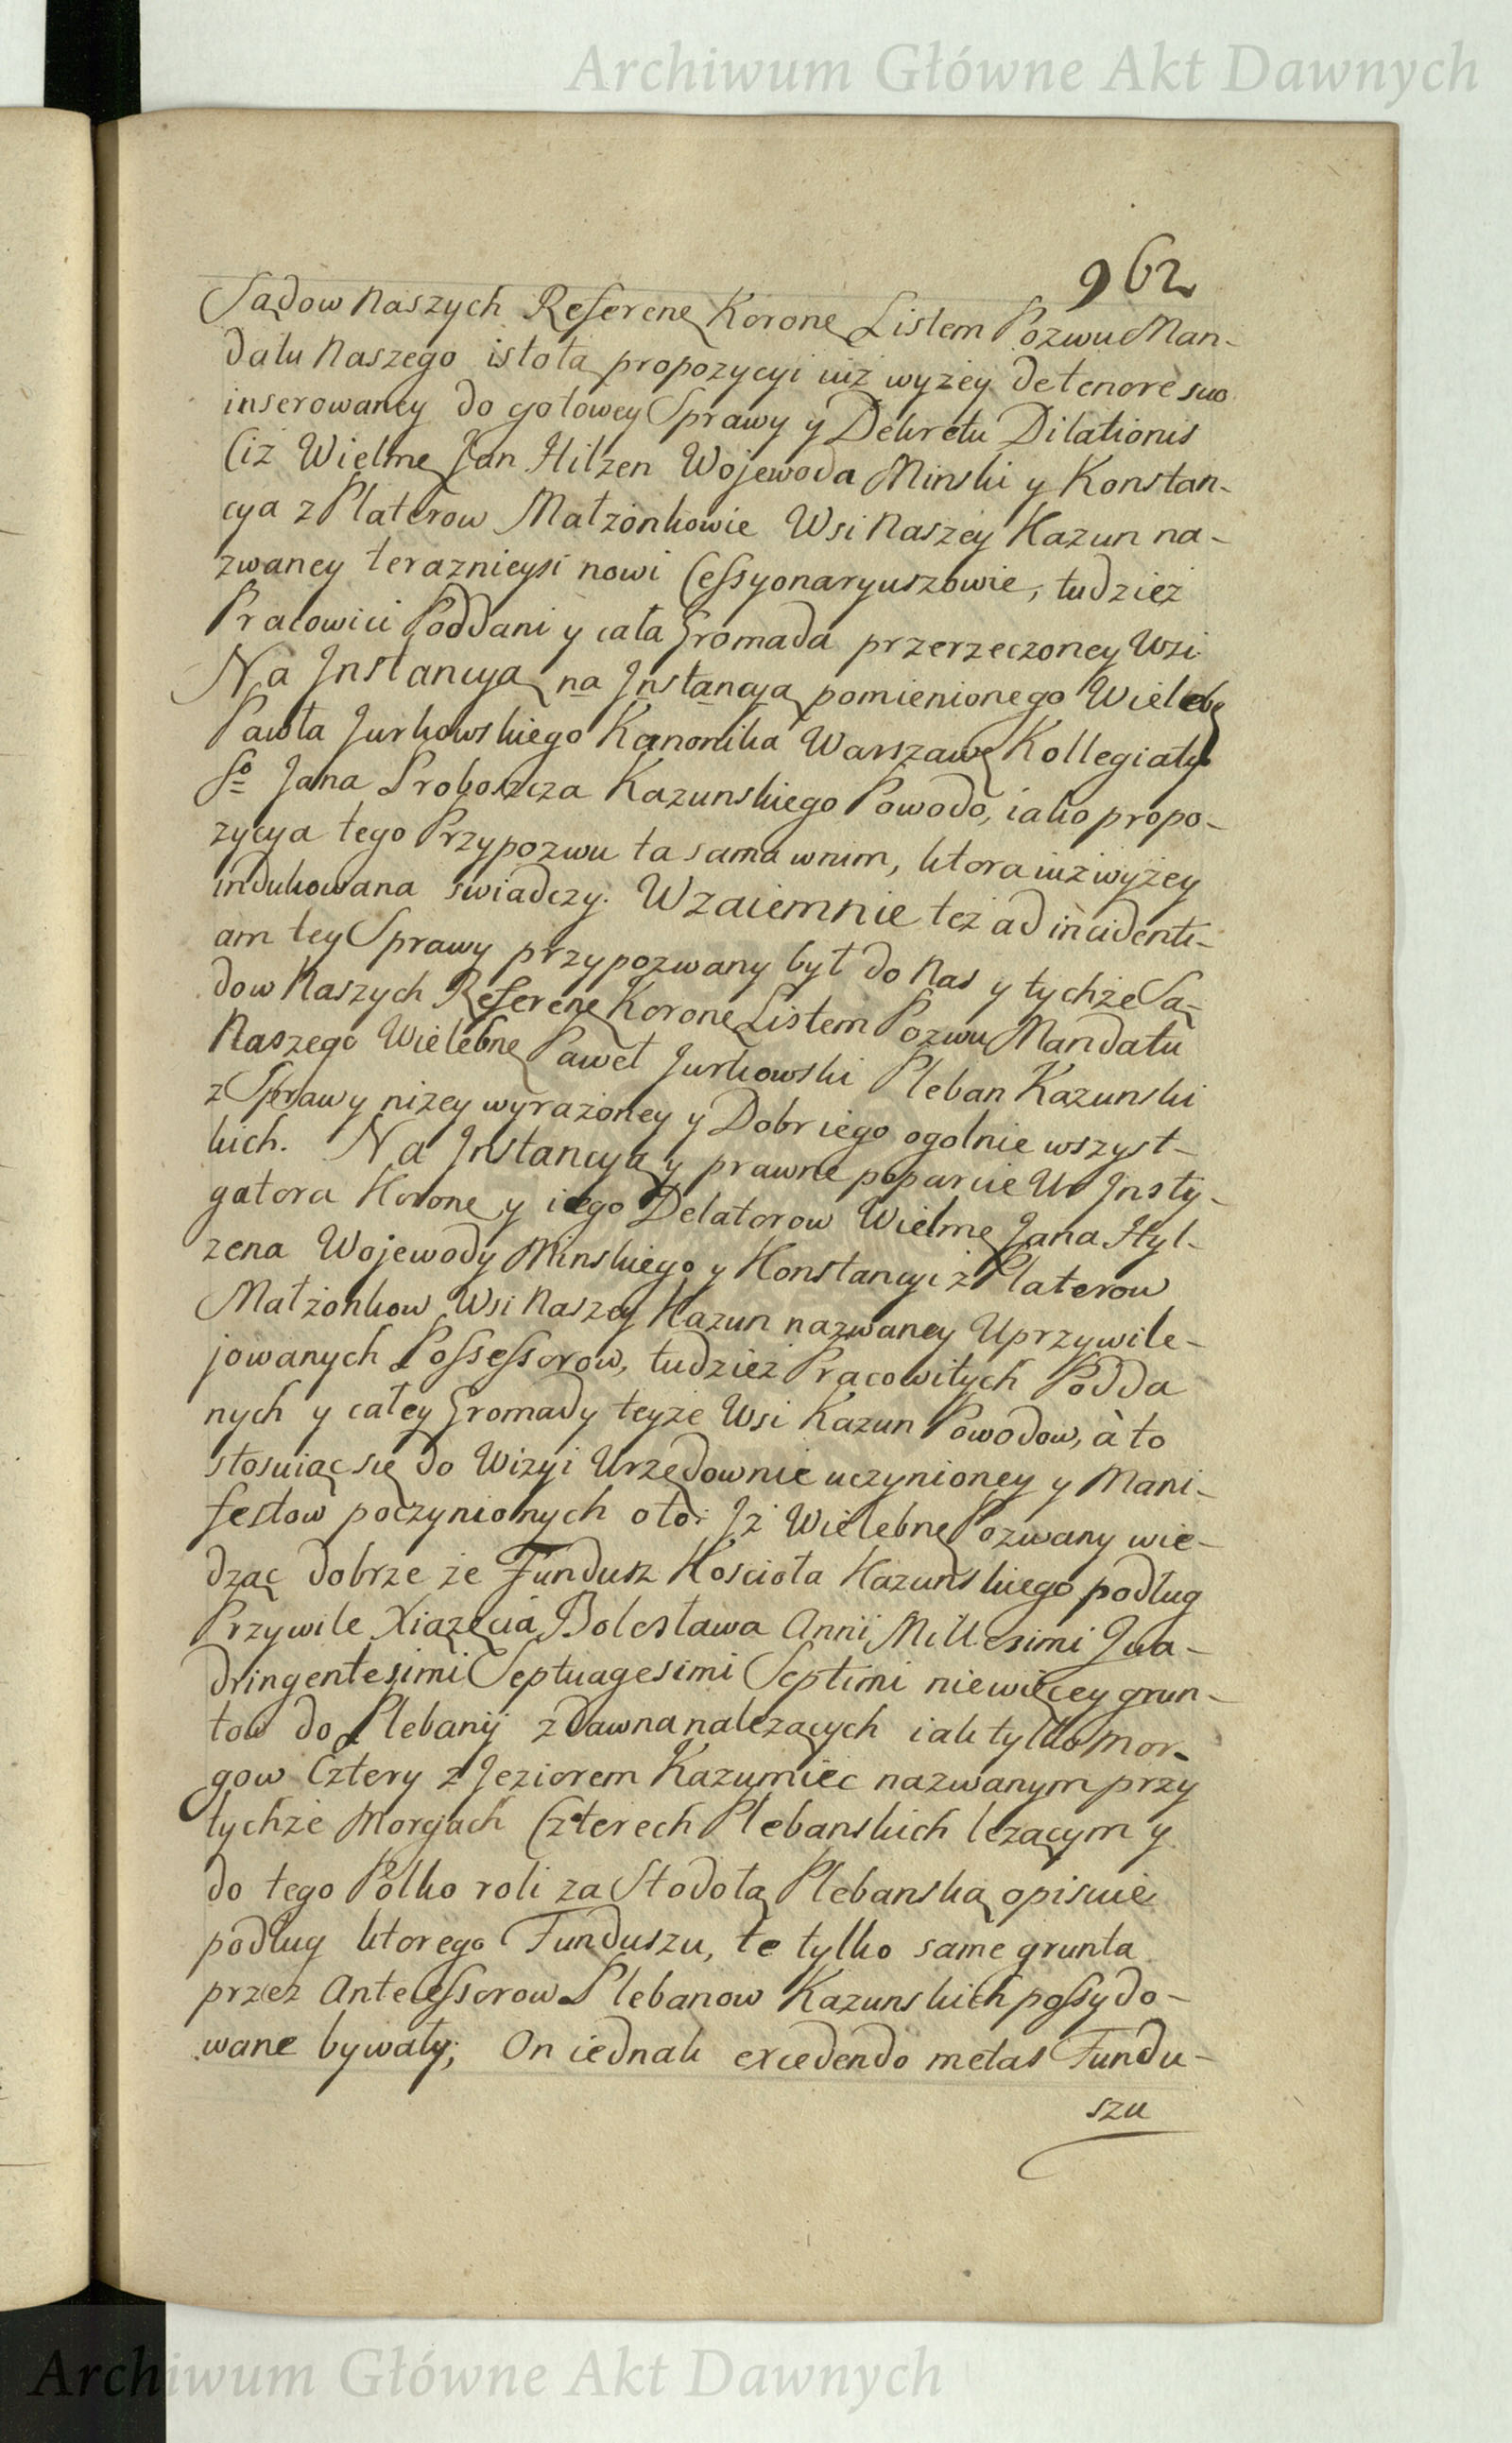 Archiwum Główne Akt Dawnych
962
Sądow Naszych Referenę Koronę Listem Pozwu Man-
datu Naszego istotą propozycyi iuż wyżey de tenore suo
inserowaney do gotowey Sprawy y Dekretu Dilationis
Ciż Wielmę Jan Hilzen Wojewoda Minski y Konstan-
cya z Platerow Małżonkowie Wsi Naszey Kazun na-
zwaney terazniejsi nowi Cessyonaryuszowie, tudzież
Pracowici Poddani y cała Gromada przerzeczoney Wsi
Na Instancyą na Instancyą pomienionego Wielebę
Pawła Jurkowskiego Kanonika Warszawę Kollegiaty
So Jana Proboszcza Kazunskiego Powodo, iako propo-
zycya tego Przypozwu ta sama wnim, ktora iuż wyżey
indukowana swiadczy. Wzaiemnie też ad incidenti-
am tey Sprawy przypozwany był do Nas y tychże Są-
dow Naszych Referenę Koronę Listem Pozwu Mandatu
Naszego Wielebnę Paweł Jurkowski Pleban Kazunski
z Sprawy niżey wyrażoney y Dobr iego ogolnie wszyst-
kich. Na Instancyą y prawne poparcie Ur Insty-
gatora Koronę y iego Delatorow Wielmę Jana Hyl-
zena Wojewody Minskiego y Konstancyi z Platerow
Małżonkow Wsi Naszey Kazun nazwaney Uprzywile-
jowanych Possessorow, tudzież Pracowitych Podda
nych y całey Gromady teyże Wsi Kazun Powodow, à to
stosuiąc się do Wizyi Urzędownie uczynioney y Mani-
festow poczynionych oto: Jż Wielebnę Pozwany wie-
dząc dobrze że Fundusz Koscioła Kazunskiego podług
Przywile Xiązęcia Bolesława Annii Millesimi Qua-
dringentesimi Septuagesimi Septimi niewięcey grun-
tow do Plebanij zdawna nalezących iak tylko Mor-
gow Cztery z Jeziorem Kazumiec nazwanym przy
tychże Morgach Czterech Plebanskich lezącym y
do tego Polko roli za Stodołą Plebanską opisuie
podług ktorego Funduszu, te tylko same grunta
przez Antecessorow Plebanow Kazunskich possydo-
wane bywały; On iednak excedendo metas Fundu-
szu
Archiwum Główne Akt Dawnych